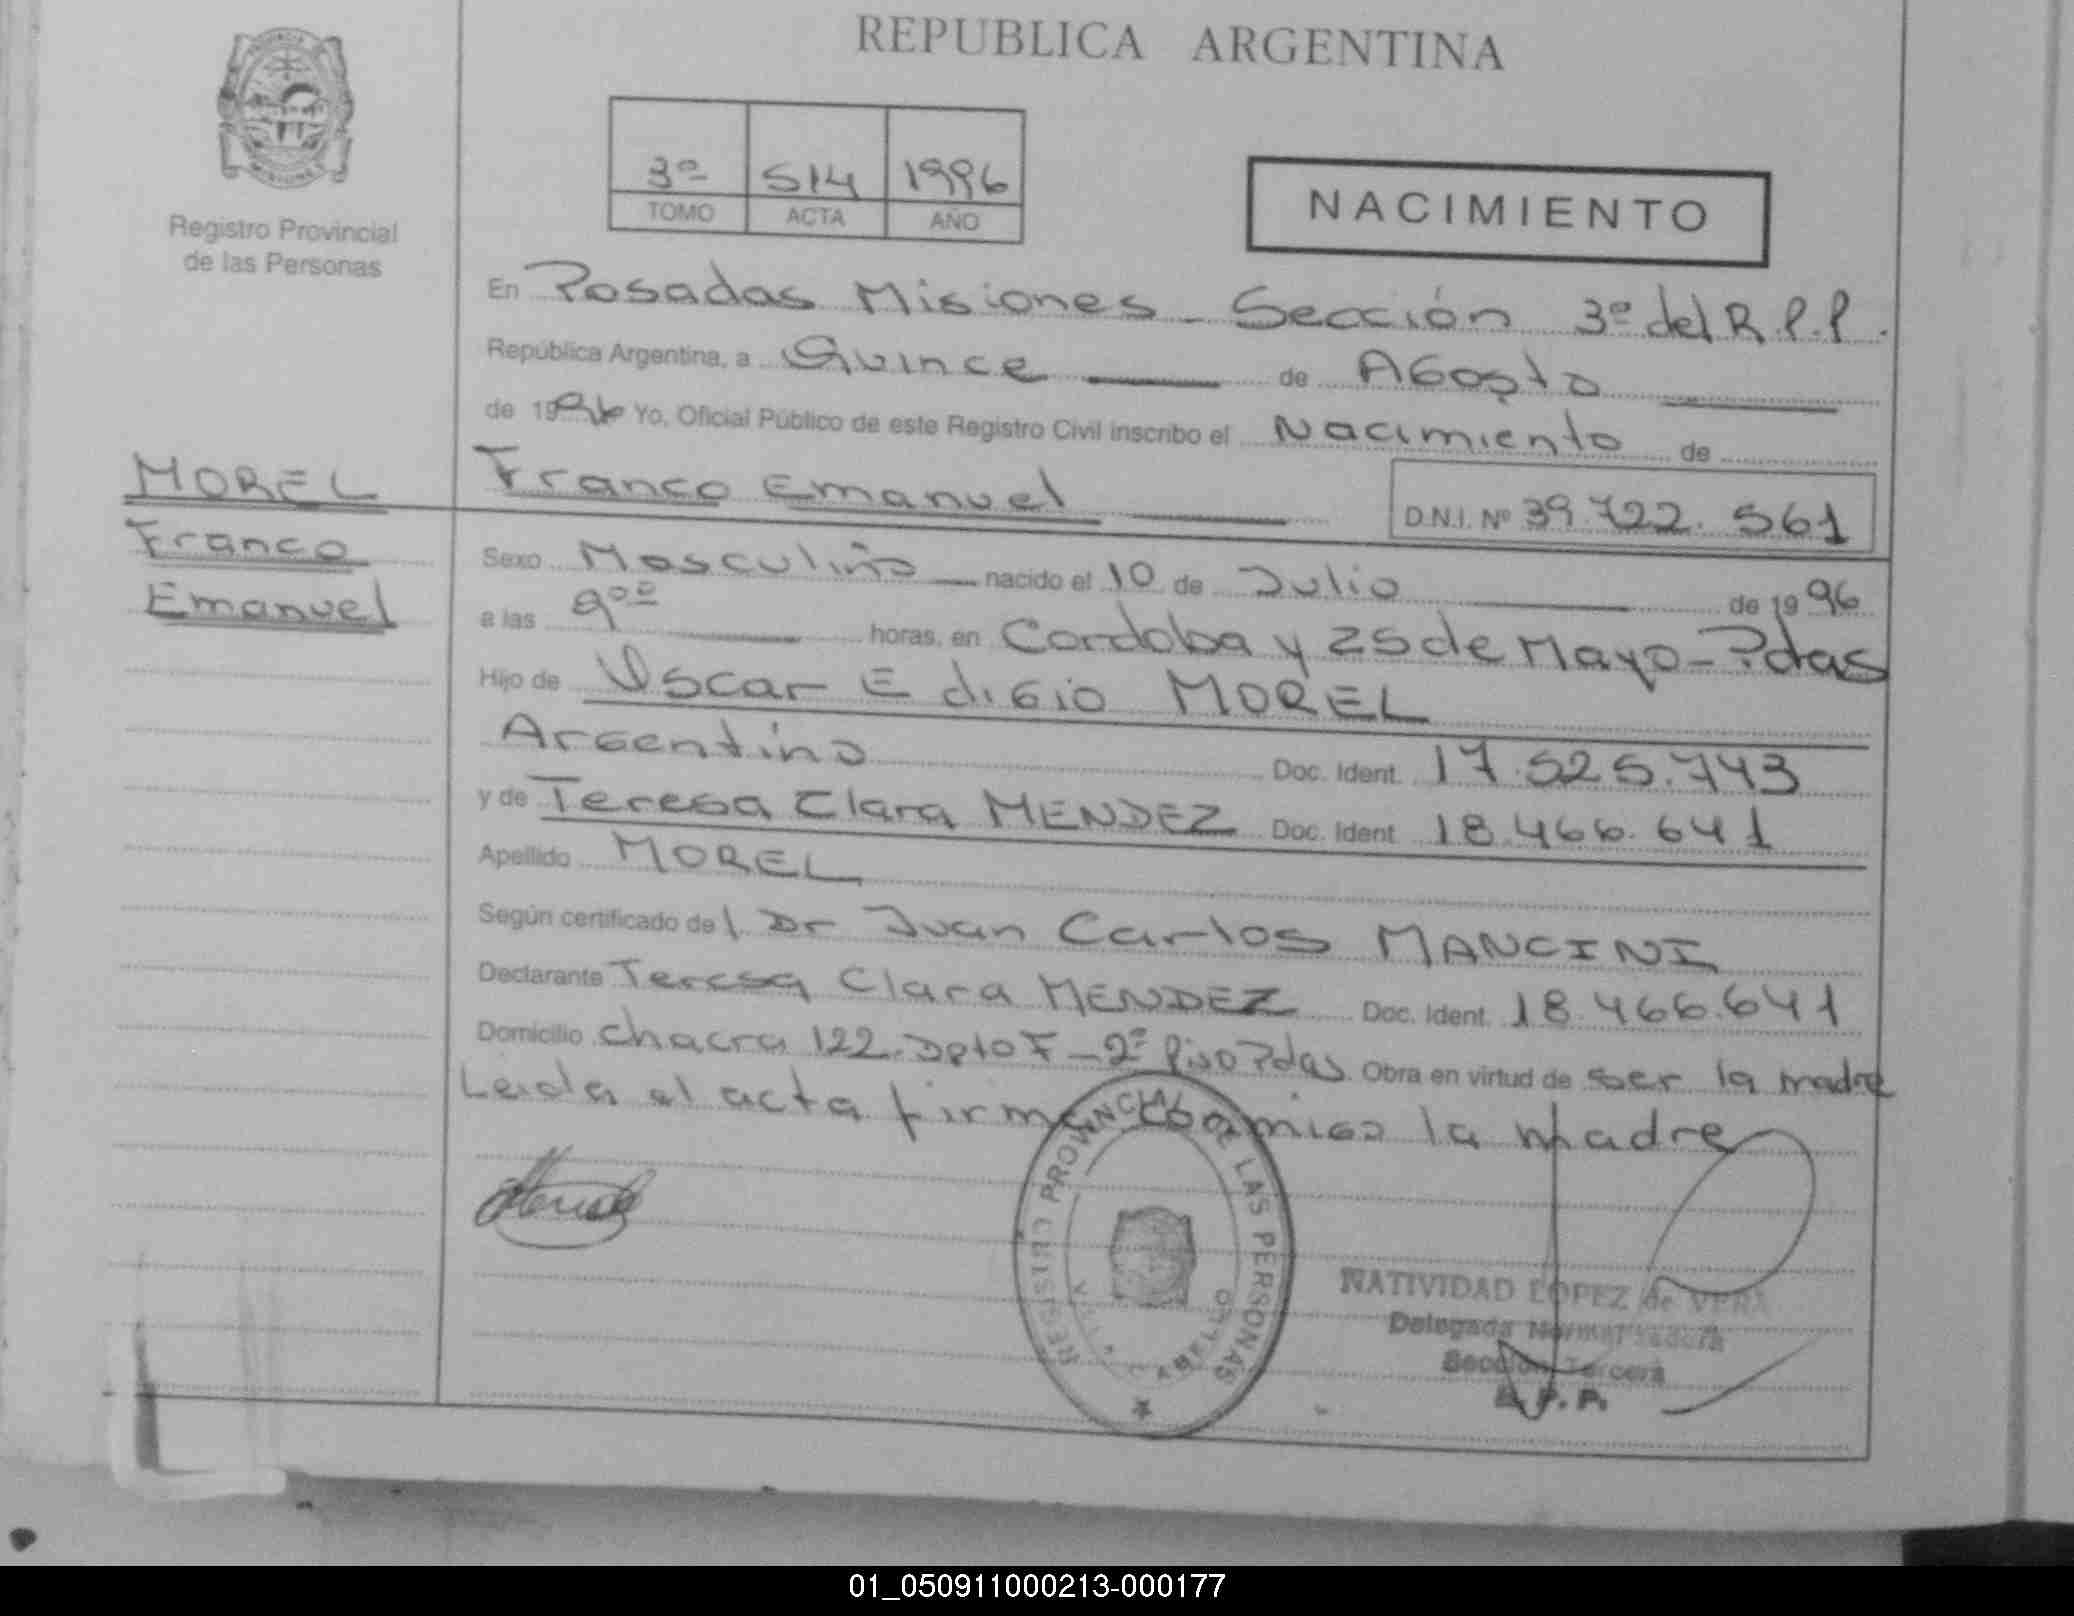 REPUBLICA ARGENTINA
Registro Provincial
de las Personas
3º 514 1996
TOMO ACTA AÑO
NACIMIENTO
En Posadas Misiones - Sección 3º del R.P.P.
República Argentina, a Quince de Agosto
de 1996 Yo, Oficial Público de este Registro Civil inscribo el Nacimiento de
MOREL
Franco
Emanuel
Franco Emanuel D.N.I. Nº 39.722.561
Sexo Masculino nacido el 10 de Julio de 1996
a las 9ºº horas, en Cordoba y 25 de Mayo - Pdas
Hijo de Oscar Edigio MOREL
Argentino Doc. Ident. 17.525.743
y de Teresa Clara MENDEZ Doc. Ident 18.466.641
Apellido MOREL
Según certificado del Dr Juan Carlos MANCINI
Declarante Teresa Clara MENDEZ Doc. Ident. 18.466.641
Domicilio Chacra 122. Dpto F - 2º Piso Pdas Obra en virtud de ser la madre
Leida el acta firma conmigo la madre
REGISTRO PROVINCIAL DE LAS PERSONAS
VILLA CABELLO
NATIVIDAD LOPEZ de VERA
Delegada Normalizadora
Sección Tercera
R. P. P.
01_050911000213-000177